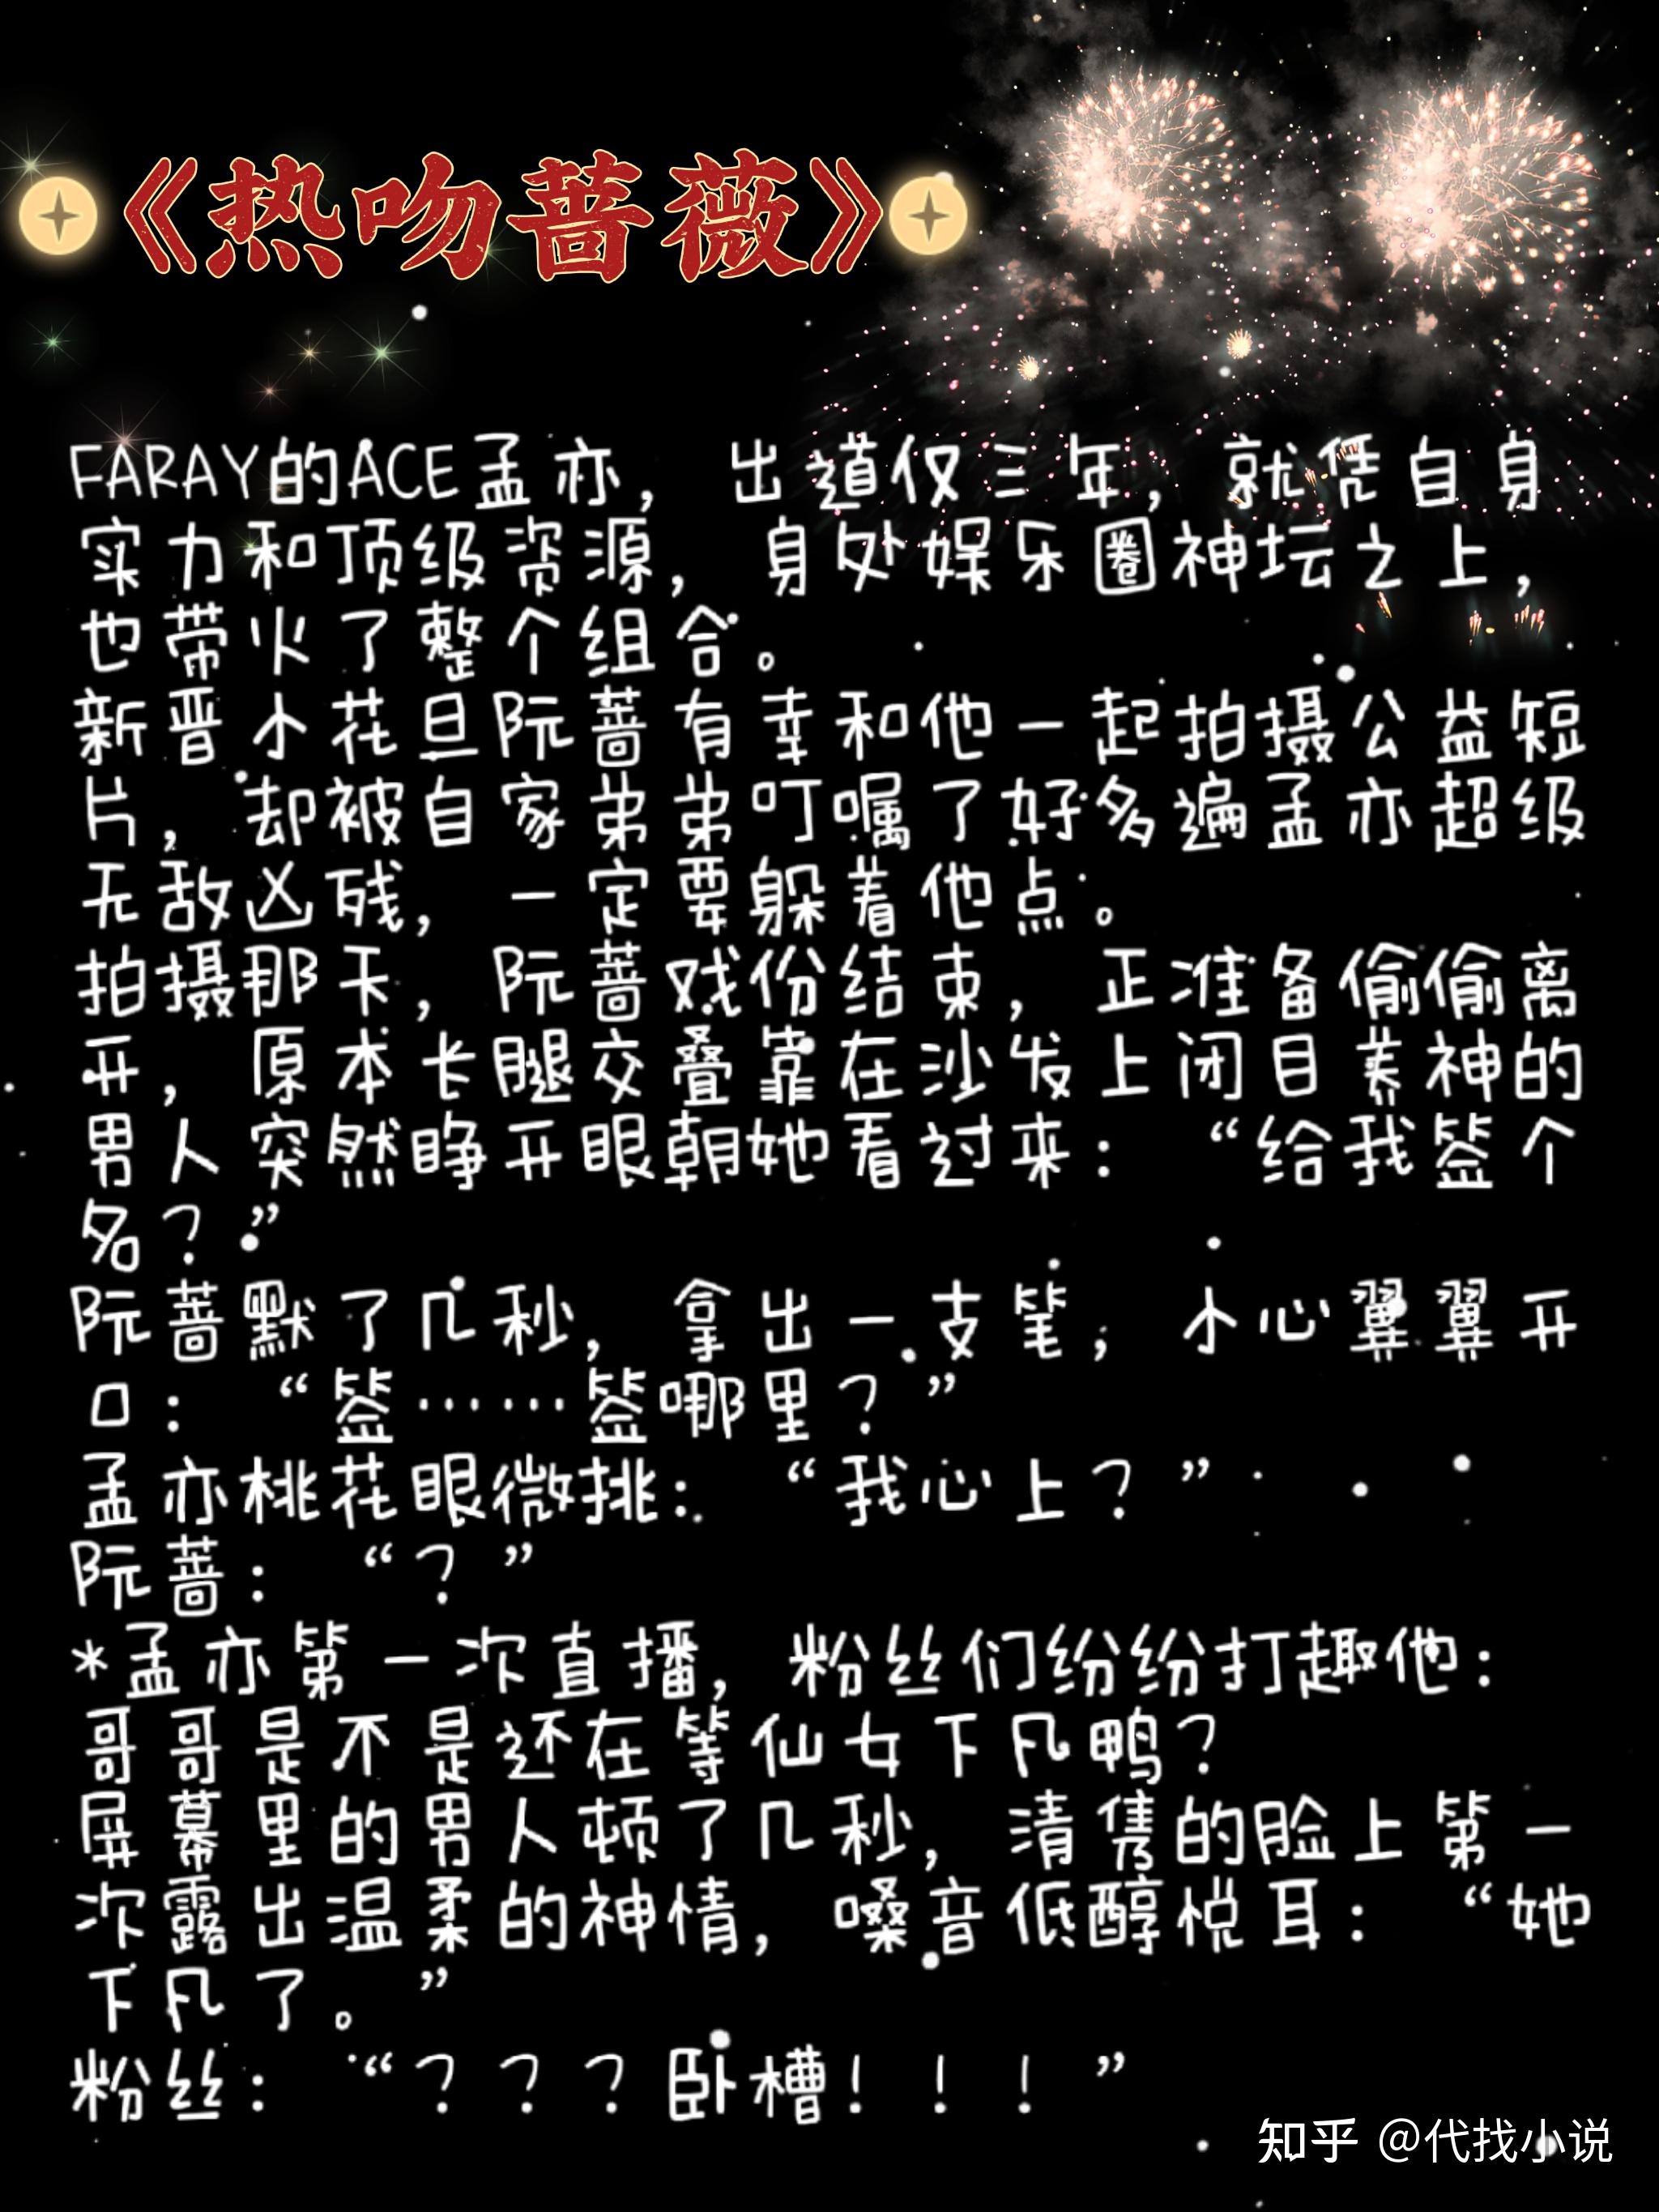 《热吻蔷薇》
FARAY的ACE孟亦，出道仅三年，就凭自身
实力和顶级资源，身处娱乐圈神坛之上，
也带火了整个组合。
新晋小花旦阮蔷有幸和他一起拍摄公益短
片，却被自家弟弟叮嘱了好多遍孟亦超级
无敌凶残，一定要躲着他点。
拍摄那天，阮蔷戏份结束，正准备偷偷离
开，原本长腿交叠靠在沙发上闭目养神的
男人突然睁开眼朝她看过来：“给我签个
名？”
阮蔷默了几秒，拿出一支笔，小心翼翼开
口：“签……签哪里？”
孟亦桃花眼微挑：“我心上？”
阮蔷：“？”
*孟亦第一次直播，粉丝们纷纷打趣他：
哥哥是不是还在等仙女下凡鸭？
屏幕里的男人顿了几秒，清隽的脸上第一
次露出温柔的神情，嗓音低醇悦耳：“她
下凡了。”
粉丝：“？？？卧槽！！！”
知乎 @代找小说